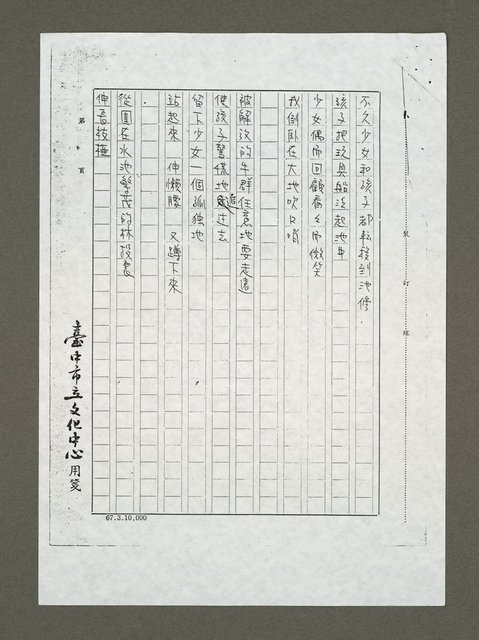 不久少女和孩子都転移到池修.
孩子把玩具船泛起池中
少女偶而回顧看々而微笑
我倒臥在大地吹口哨
被解放的牛群任意地要走遠
使孩子驚慌地追过去
留下少女一個孤独地
站起來 伸懶腰 又蹲下來
從圍在水池繁茂的林投裏
伸着枝椏
第 頁
臺中市立文化中心用箋
67.3.10,000
裝
訂
線